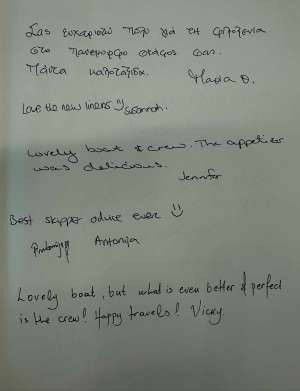 Σας ευχαριστώ πολύ για τη φιλοξενία
στο πανέμορφο σκάφος σας.
Πάντα καλοτάξιδα. Μαρία Θ.
Love the new linens Susannah.
Lovely boat & crew. The appetiser
was delicious.
Jennifer
Best skipper advice ever
Antonija
Lovely boat, but what is even better & perfect
is the crew! Happy travels! Vicky.